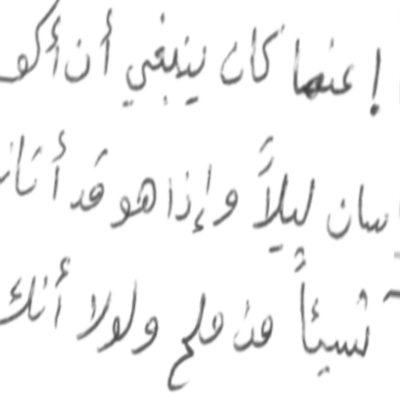 ! عنها كان ينبغي أن أكو
سان ليلاً وإذا هو قد أتان
شيئاً من ملح ولولا أنك